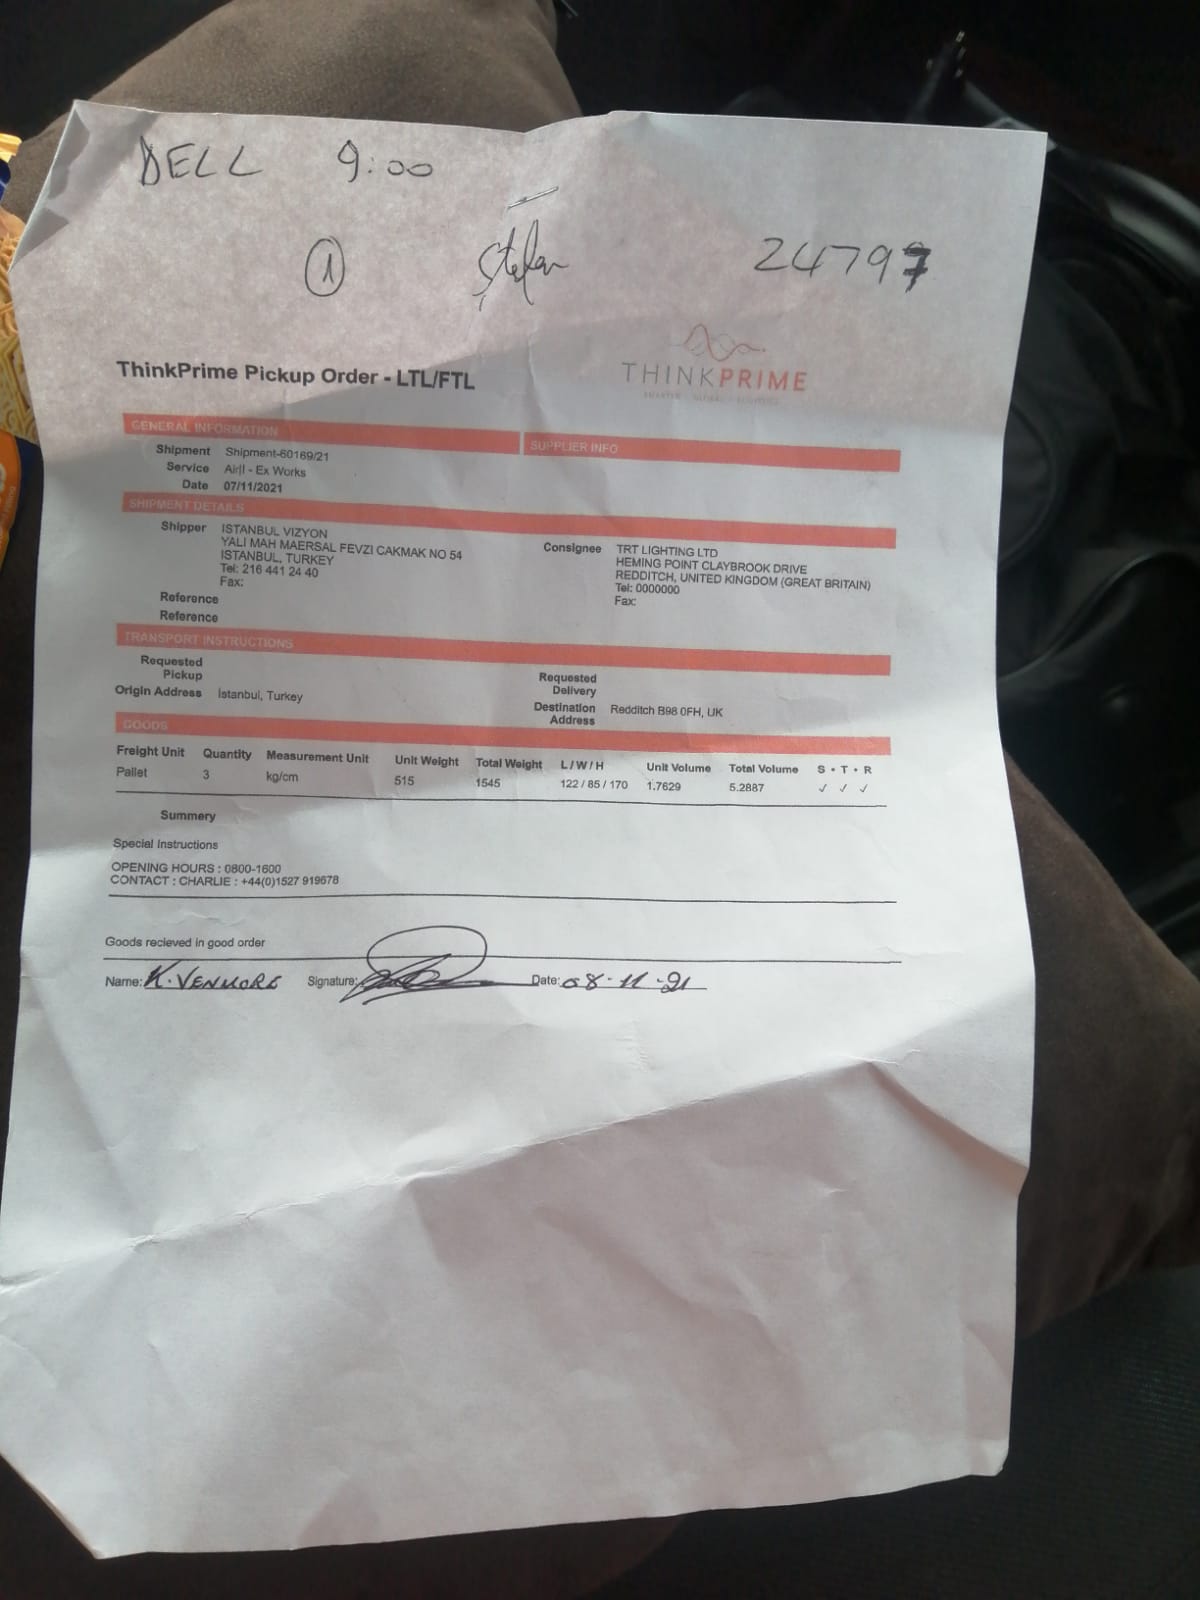 DELL 9:00
1 Ștefan 24797
ThinkPrime Pickup Order - LTL/FTL
THINKPRIME
GENERAL INFORMATION
SUPPLIER INFO
Shipment Shipment-60169/21
Service Air|I - Ex Works
Date 07/11/2021
SHIPMENT DETAILS
Shipper ISTANBUL VIZYON
YALI MAH MAERSAL FEVZI CAKMAK NO 54
ISTANBUL, TURKEY
Tel: 216 441 24 40
Fax:
Consignee TRT LIGHTING LTD
HEMING POINT CLAYBROOK DRIVE
REDDITCH, UNITED KINGDOM (GREAT BRITAIN)
Tel: 0000000
Fax:
Reference
Reference
TRANSPORT INSTRUCTIONS
Requested
Pickup
Requested
Delivery
Origin Address İstanbul, Turkey
Destination
Address Redditch B98 0FH, UK
GOODS
Freight Unit Quantity Measurement Unit Unit Weight Total Weight L / W / H Unit Volume Total Volume S • T • R
Pallet 3 kg/cm 515 1545 122 / 85 / 170 1.7629 5.2887 ✓ ✓ ✓
Summery
Special Instructions
OPENING HOURS : 0800-1600
CONTACT : CHARLIE : +44(0)1527 919678
Goods recieved in good order
Name: K. VENMORE Signature: Date: 08-11-21